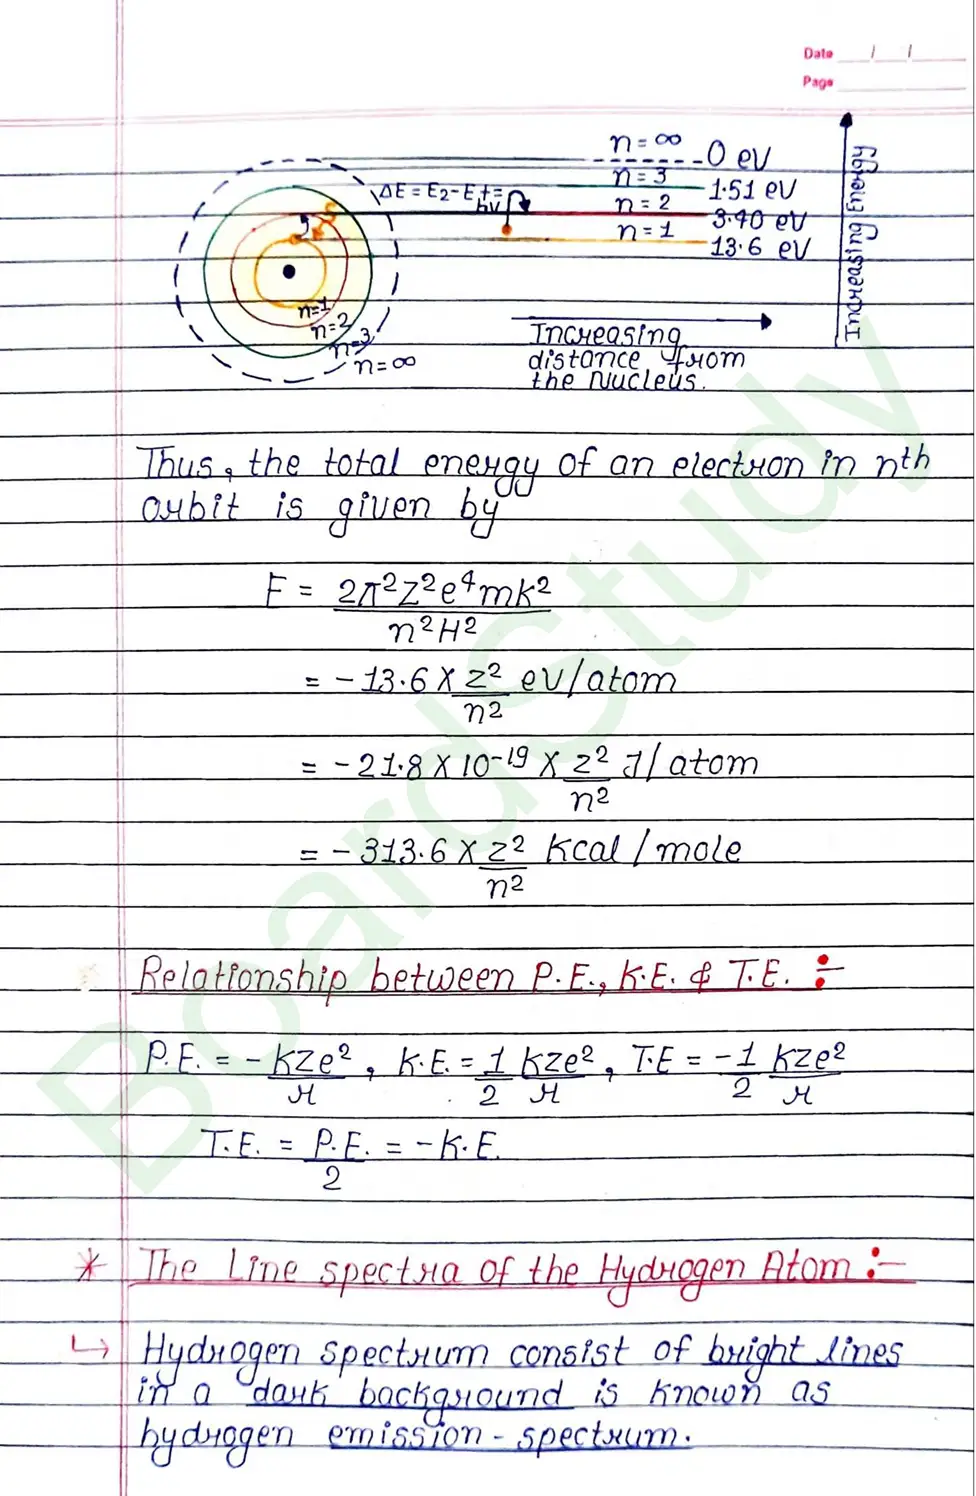 Date / /
Page
n = ∞
0 eV
n = 3
1.51 eV
ΔE = E2 - E1 = hν
n = 2
3.40 eV
n = 1
13.6 eV
Increasing Energy
n=1
n=2
n=3
n=∞
Increasing
distance from
the Nucleus.
Thus, the total energy of an electron in nth
orbit is given by
E = 2π²Z²e⁴mk² / n²H²
= - 13.6 X Z²/n² eV/atom
= - 21.8 X 10⁻¹⁹ X Z²/n² J/atom
= - 313.6 X Z²/n² Kcal / mole
Relationship between P.E., K.E. & T.E. :-
P.E. = - KZe²/r , K.E. = 1/2 KZe²/r , T.E = - 1/2 KZe²/r
T.E. = P.E./2 = - K.E.
* The Line spectra of the Hydrogen Atom :-
↳ Hydrogen spectrum consist of bright lines
in a dark background is known as
hydrogen emission - spectrum.
BoardStudy